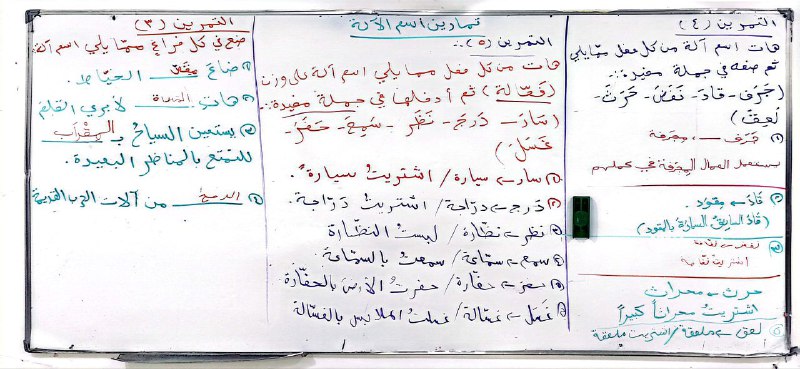 تمارين اسم الآلة
التمرين (٣)
ضع في كل فراغ مما يلي اسم آلة:
① ضاعَ مقصّ الخيّاط.
② هاتِ المبراة لأبري القلم
③ يستعين السيّاحُ بـ المِقْرَاب
للتمتع بالمناظر البعيدة.
④ من آلات الحرب القديمة
التمرين (٥):
هات من كل فعل مما يلي اسم آلة على وزن
(فَعّالة) ثم أدخلها في جملة مفيدة:
(سَارَ - دَرَجَ - نَظَرَ - سَمِعَ - حَفَرَ -
غَسَلَ)
① سار ← سيارة / اشتريتُ سيارةً.
② دَرَج ← درّاجة / اشتريتُ درّاجة.
③ نظر ← نظّارة / لبستُ النظّارة
④ سمع ← سمّاعة / سمعتُ بالسمّاعة
⑤ حفر ← حفّارة / حفرتُ الأرضَ بالحفّارة
⑥ غَسَلَ ← غسّالة / غسلتُ الملابس بالغسّالة
التمرين (٤)
هات اسم آلة من كل فعل مما يلي
ثم ضعه في جملة مفيدة:
(جَرَفَ - قادَ - نَفَضَ - حَرَثَ -
لَعِقَ)
① جَرَفَ ← مِجرَفة
يستعمل العمال المِجرَفة في عملهم
② قادَ ← مِقوَد.
(قادَ السائقُ السيارةَ بالمقود)
③
حرث ← محراث
اشتريتُ محراثاً كبيراً
⑤ لعق ← ملعقة / اشتريت ملعقة